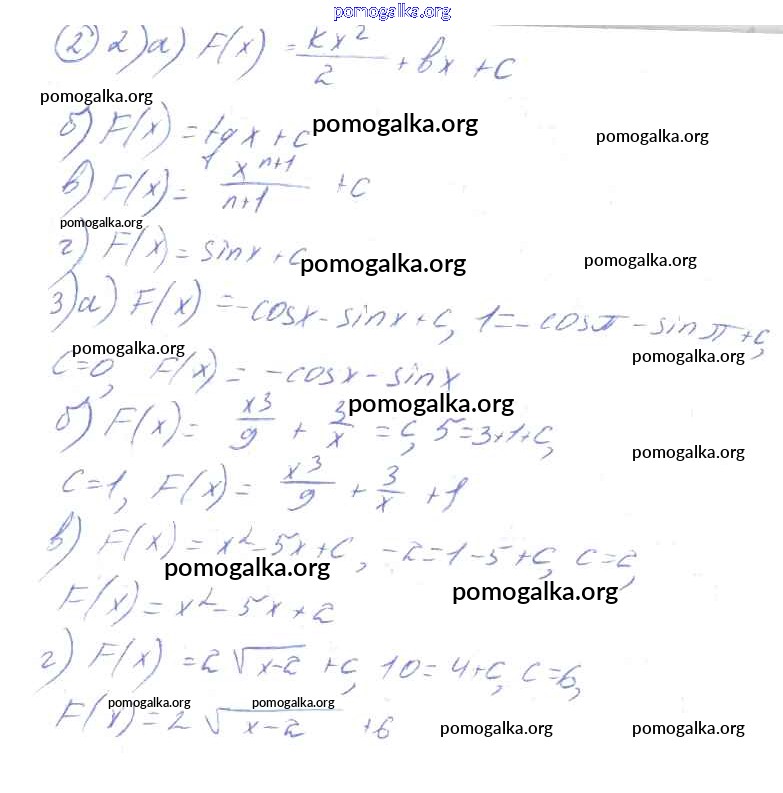 pomogalka.org
② 2) а) F(x) = kx²/2 + bx + C
pomogalka.org
б) F(x) = tg x + C
pomogalka.org
pomogalka.org
в) F(x) = x^(n+1)/(n+1) + C
pomogalka.org
г) F(x) = sinx + C
pomogalka.org
pomogalka.org
3) а) F(x) = -cosx - sinx + C, 1 = -cosπ - sinπ + C,
pomogalka.org
pomogalka.org
C = 0, F(x) = -cosx - sinx
pomogalka.org
б) F(x) = x³/9 + 3/x = C, 5 = 3 + 1 + C,
pomogalka.org
C = 1, F(x) = x³/9 + 3/x + 1
в) F(x) = x² - 5x + C, -2 = 1 - 5 + C, C = 2,
pomogalka.org
pomogalka.org
F(x) = x² - 5x + 2
г) F(x) = 2√(x-2) + C, 10 = 4 + C, C = 6,
pomogalka.org
pomogalka.org
F(x) = 2√(x-2) + 6
pomogalka.org
pomogalka.org